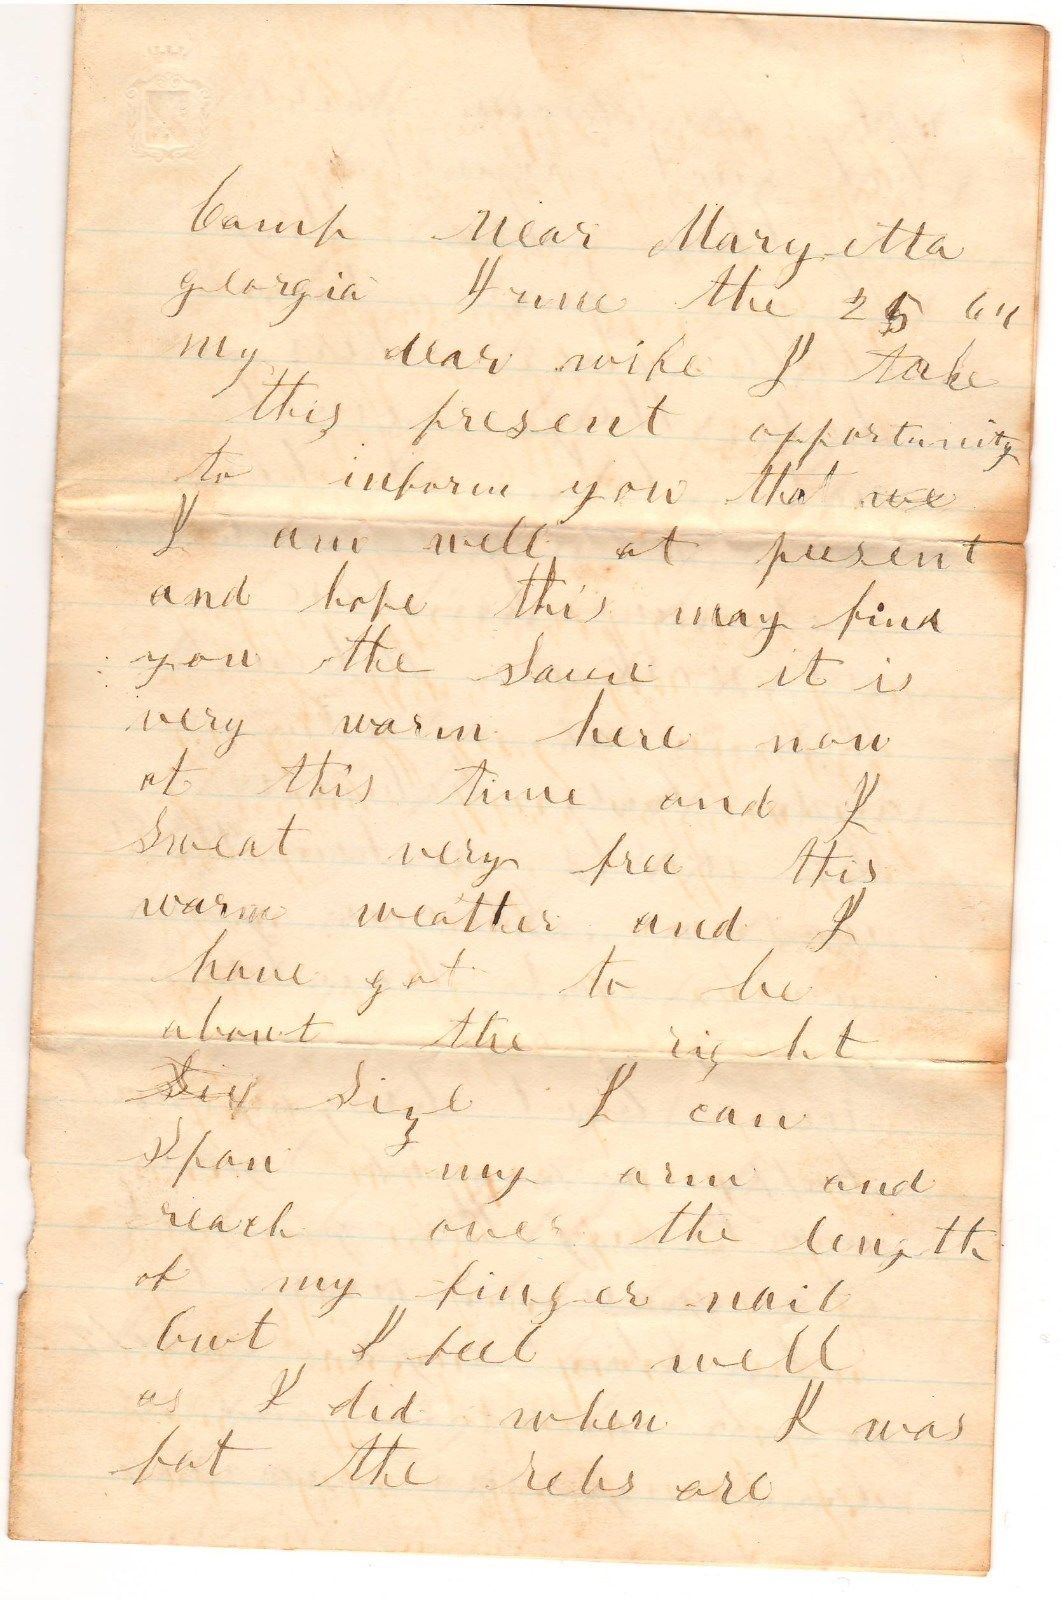 Camp Near Maryetta
georgia June the 25 64
my dear wife I take
this present opportunity
to inform you that we
I am well at present
and hope this may find
you the Same it is
very warm here now
at this time and I
Sweat very free this
warm weather and I
have got to be
about the right
Six Size I can
Span my arm and
reach over the length
of my finger nail
but I feel well
as I did when I was
fat the rebs are